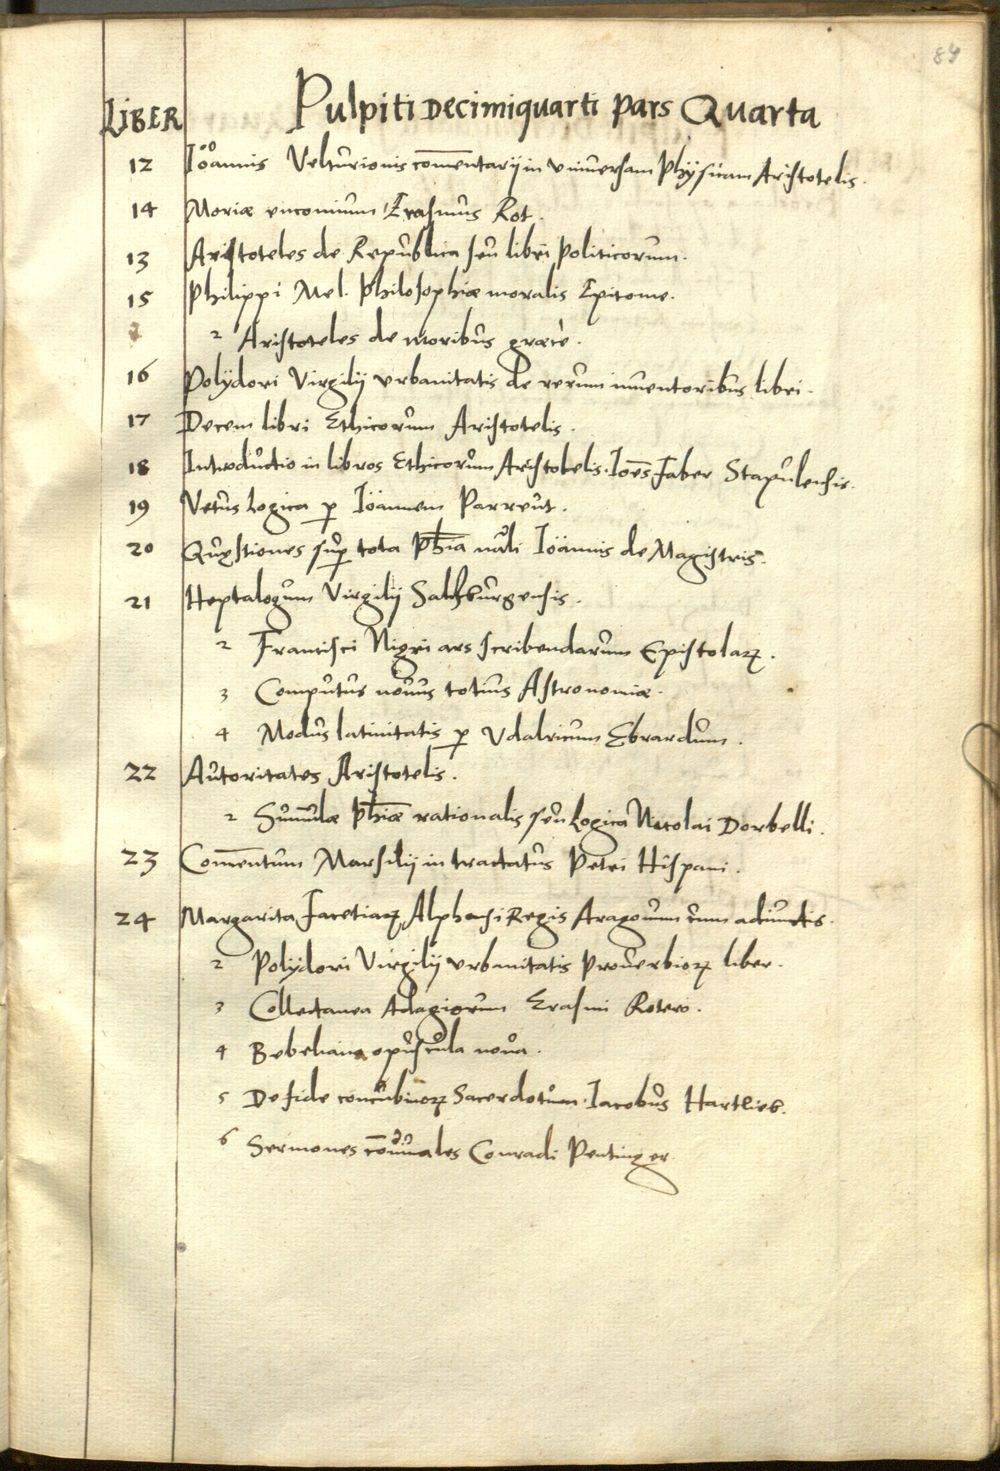 84
LIBER Pulpiti Decimiquarti pars Quarta
12 Ioannis Velturionis com̄entarij in vniuersam Physicam Aristotelis.
14 Moriæ encomium Erasmus Rot.
13 Aristoteles de Republica seu libri Politicorum.
15 Philippi Mel. Philosophiæ moralis Epitome.
2 Aristoteles de moribus græcè.
16 Polydori Virgilij vrbanitatis de rerum inuentoribus libri.
17 Decem libri Ethicorum Aristotelis.
18 Introductio in libros Ethicorum Aristotelis. Ioēs Faber Stapulensis.
19 Vetus Logica ꝑ Ioannem Parreut.
20 Quęstiones suꝑ tota Ph̄ia nāli Ioannis de Magistris.
21 Heptalogum Virgilij Saltzburgensis.
2 Francisci Nigri ars scribendarum Epistolaꝝ.
3 Computus nouus totius Astronomiæ.
4 Modus latinitatis ꝑ Vdalricum Ebrardum.
22 Autoritates Aristotelis.
2 Sum̄ulæ Ph̄iæ rationalis seu Logica Nicolai Dorbelli.
23 Com̄entum Marsilij in tractatus Petri Hispani.
24 Margarita Facetiaꝝ Alphonsi Regis Aragonum cum adiunctis.
2 Polydori Virgilij vrbanitatis Prouerbioꝝ liber.
3 Collectanea Adagiorum Erasmi Rotero.
4 Bebeliana opuscula noua.
5 De fide concubinaꝝ Sacerdotum. Iacobus Hartlieb.
6 Sermones cōuiuales Conradi Peutinger.